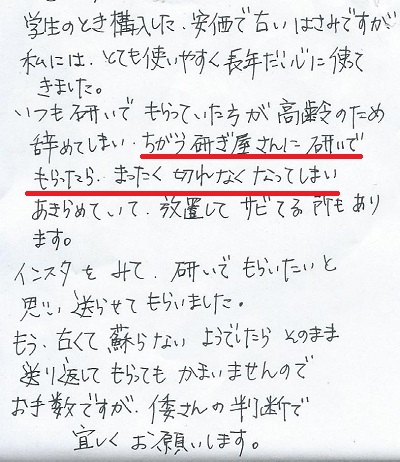 学生のとき購入した、安価で古いはさみですが
私には、とても使いやすく長年だいじに使って
きました。
いつも研いでもらっていた方が高齢のため
辞めてしまい、ちがう研ぎ屋さんに研いで
もらったら、まったく切れなくなってしまい
あきらめていて、放置してサビてる所もあり
ます。
インスタをみて、研いでもらいたいと
思い送らせてもらいました。
もう、古くて蘇らないようでしたらそのまま
送り返してもらってもかまいませんので
お手数ですが、倭さんの判断で
宜しくお願いします。